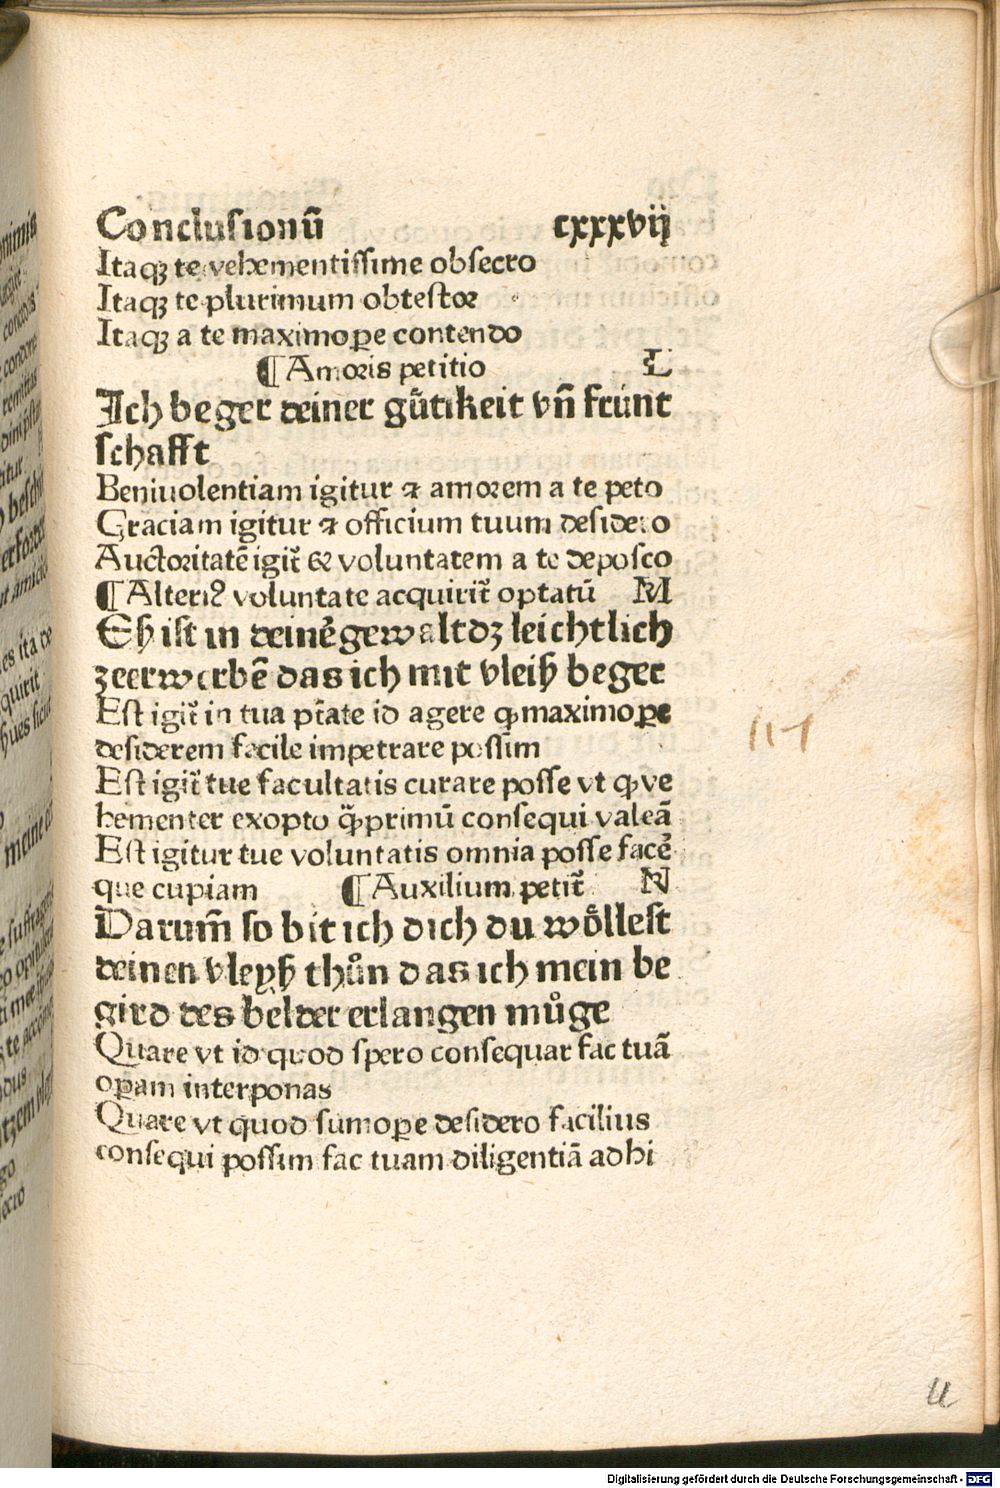 Conclusionū cxxxvij
Itaqꝫ te vehementissime obsecro
Itaqꝫ te plurimum obtestoꝛ
Itaqꝫ a te maximoꝑe contendo
¶ Amoꝛis petitio L
Ich beger deiner gütikeit vn̄ frünt
schafft
Beniuolentiam igitur ⁊ amoꝛem a te peto
Graciam igitur ⁊ officium tuum desidero
Auctoꝛitatē igit᷑ & voluntatem a te deposco
¶ Alteriꝰ voluntate acquirit᷑ optatū M
Eß ist in deinē gewalt dꝫ leichtlich
zeerwerbē das ich mit vleiß beger
Est igit᷑ in tua ptāte id agere ꝙ maximoꝑe
desiderem facile impetrare possim
Est igit᷑ tue facultatis curare posse vt ꝙ ve
hementer exopto q̄ꝫprimū consequi valeā
Est igitur tue voluntatis omnia posse facē
que cupiam ¶ Auxilium petit᷑ N
Darum̄ so bit ich dich du wöllest
deinen vleyß thůn das ich mein be
gird des belder erlangen můge
Quare vt id quod spero consequar fac tuā
opam interponas
Quare vt quod sumoꝑe desidero facilius
consequi possim fac tuam diligentiā adhi
117
Digitalisierung gefördert durch die Deutsche Forschungsgemeinschaft - DFG